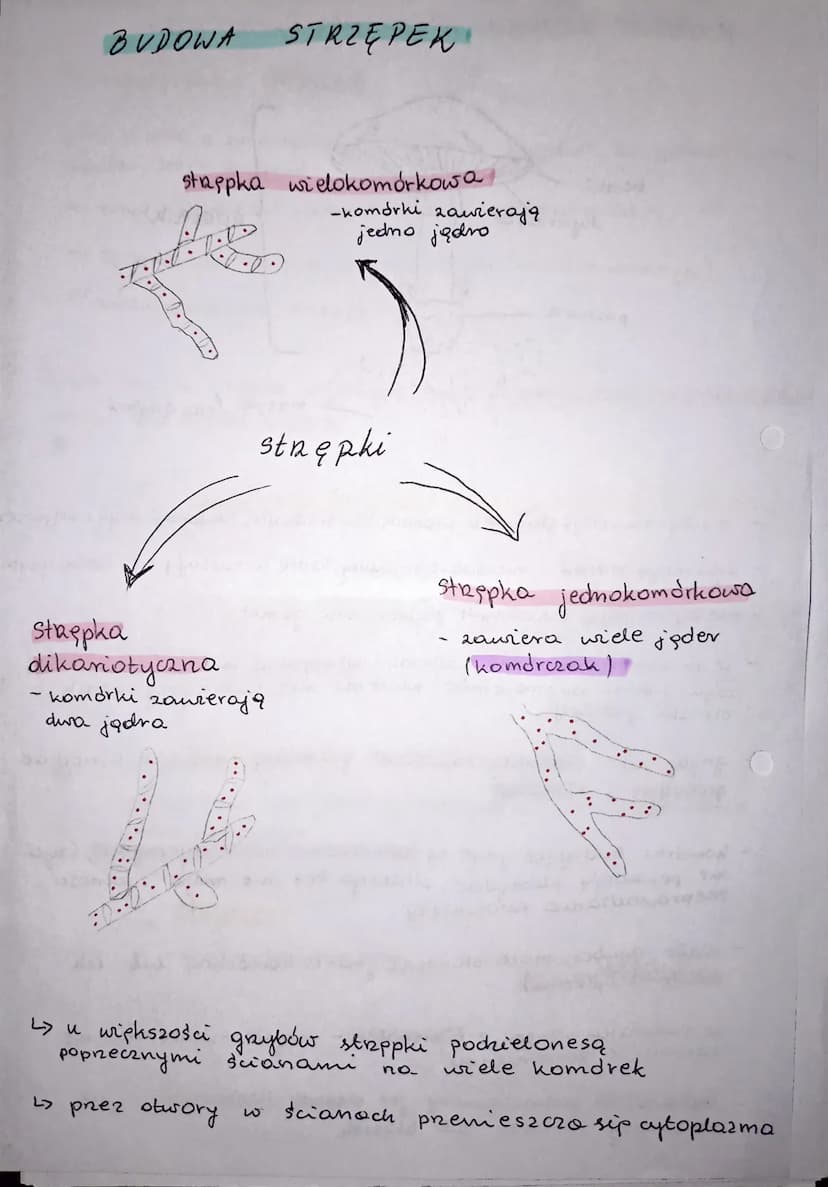 BUDOWA STRZĘPEK
strzępka wielokomórkowa
-komórki zawierają
jedno jądro
strzępki
strzępka jednokomórkowa
- zawiera wiele jąder
(komórczak)
strzępka
dikariotyczna
- komórki zawierają
dwa jądra
↳ u większości grzybów strzępki podzielonesą
poprzecznymi ścianami na wiele komórek
↳ przez otwory w ścianach przemieszcza się cytoplazma